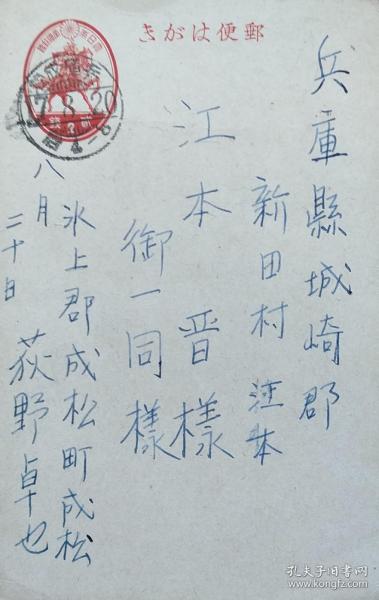 郵便はがき
兵庫縣城崎郡
新田村 江本
江本 晋様
御一同様
氷上郡成松町成松
荻野卓也
八月
二十日
7.8.20
孔夫子旧书网
www.kongfz.com